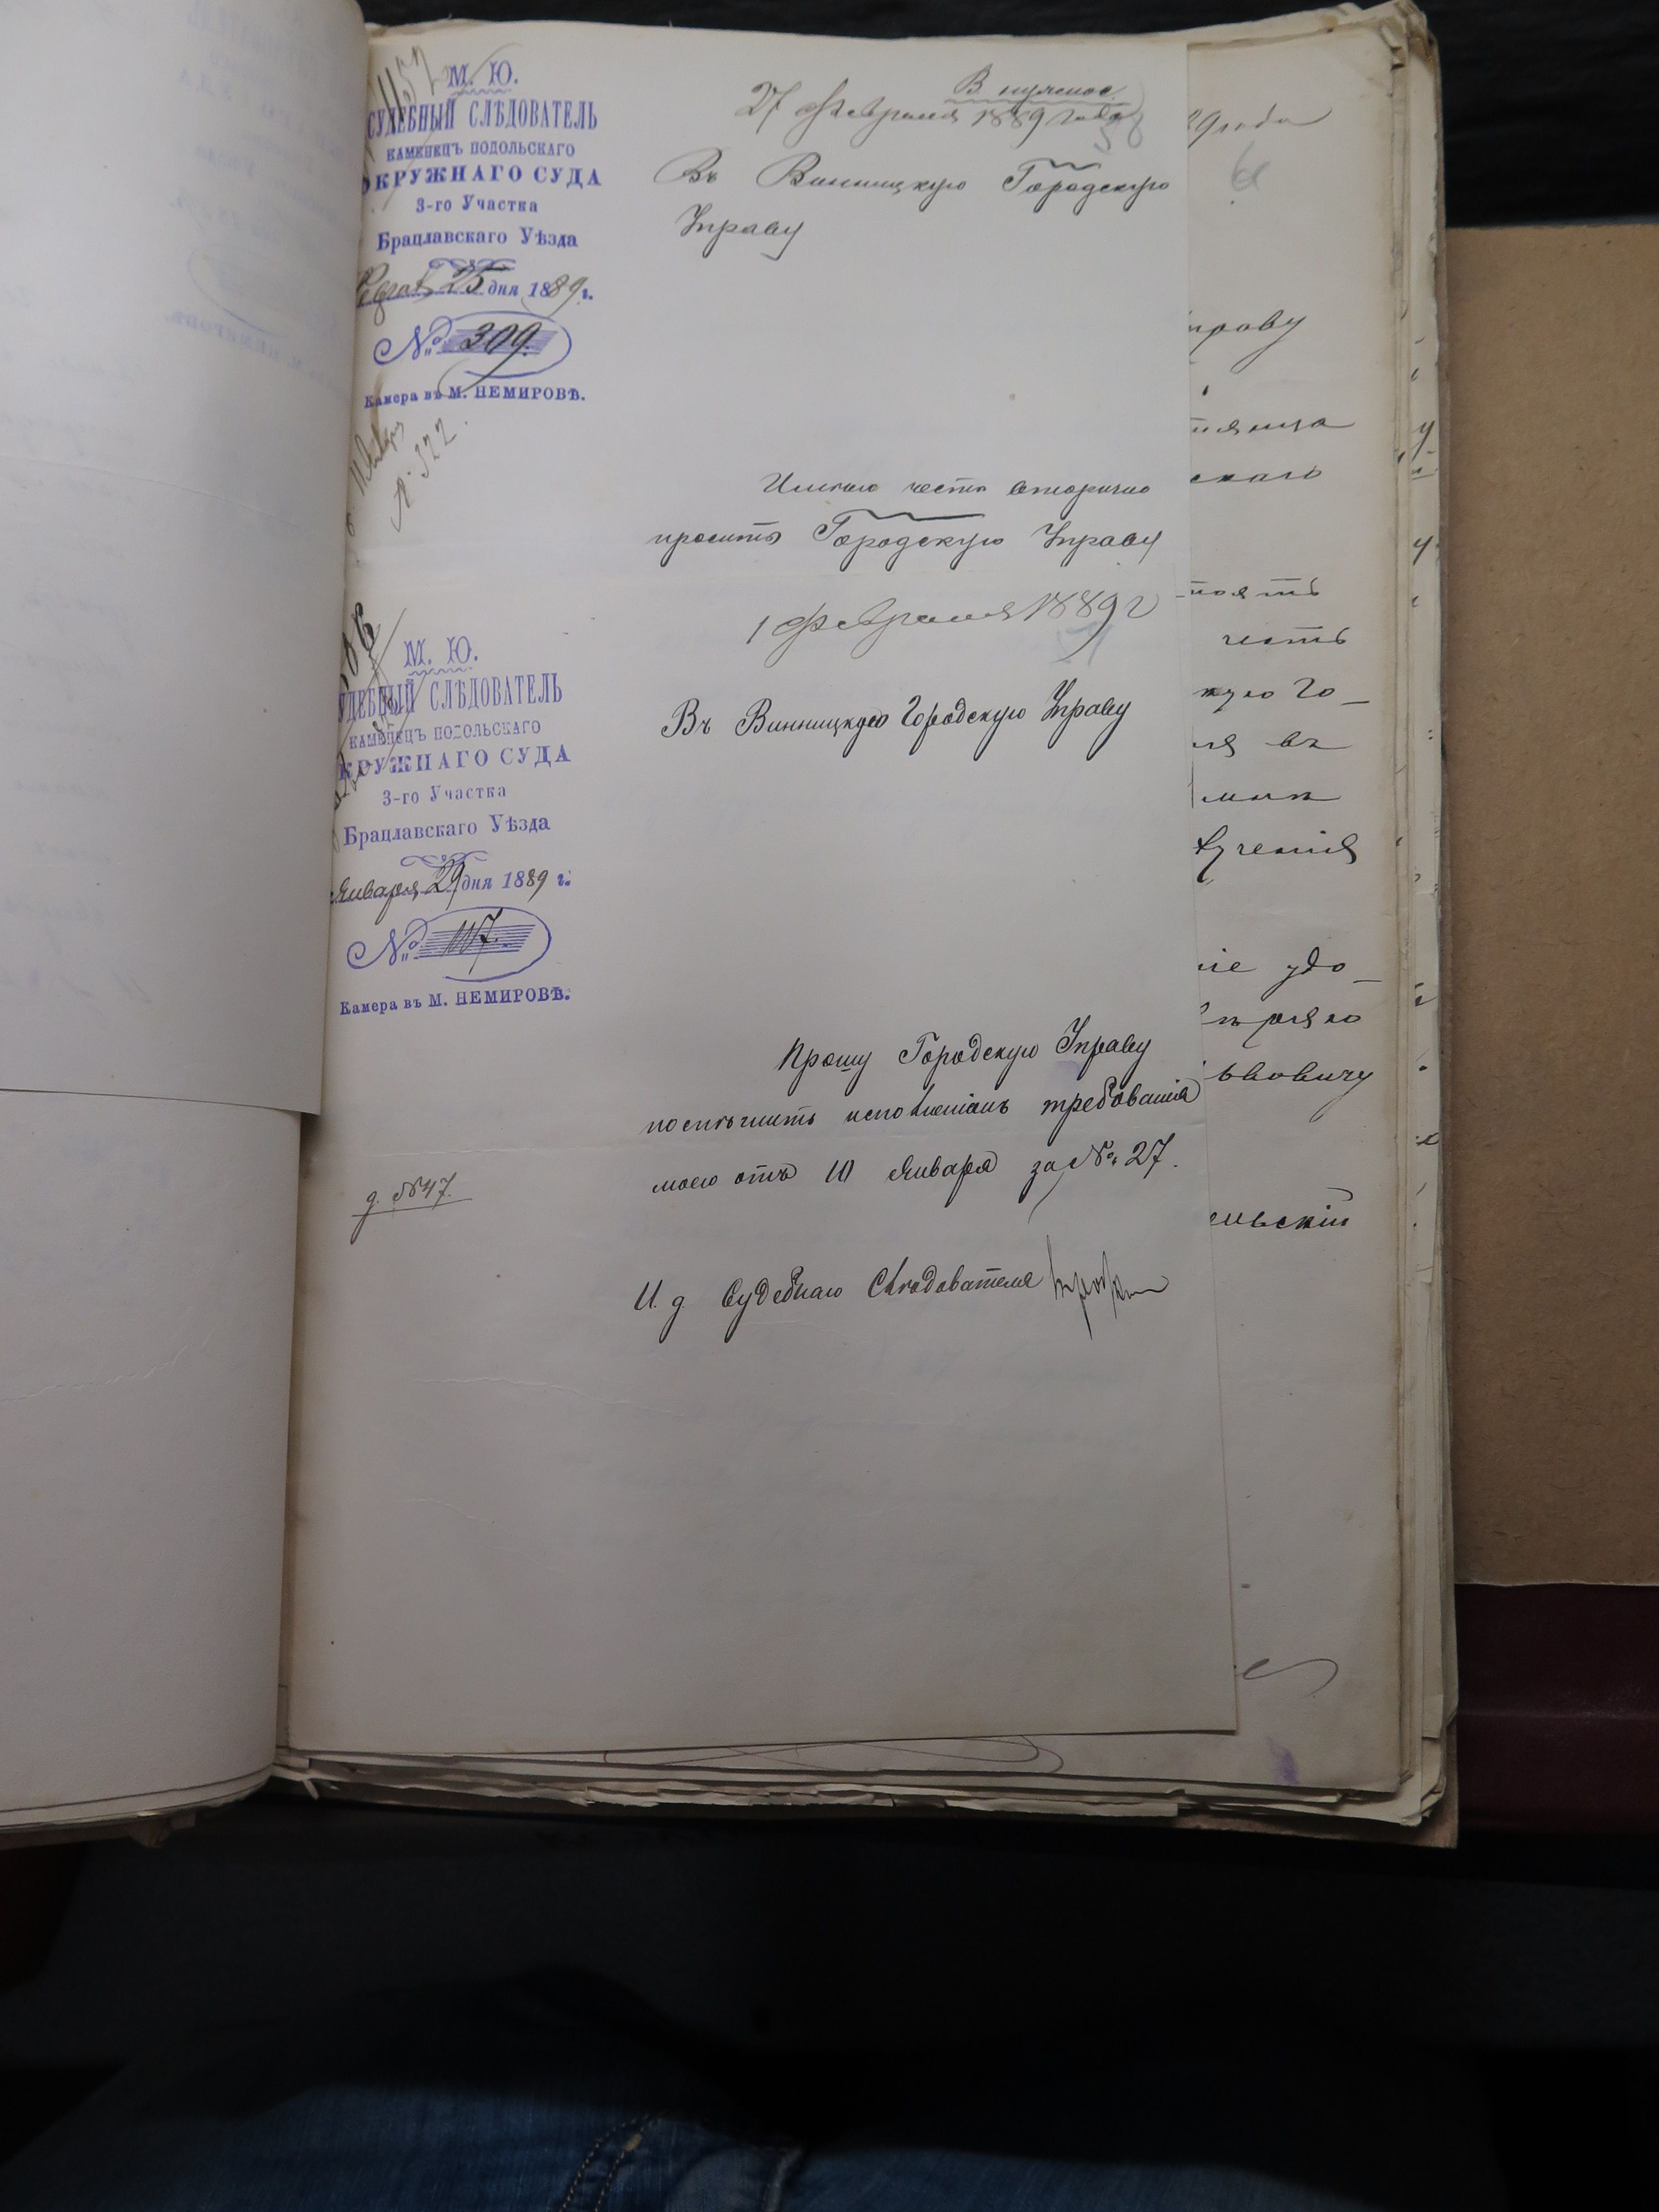 М. Ю.
СУДЕБНЫЙ СЛѢДОВАТЕЛЬ
КАМЕНЕЦЪ ПОДОЛЬСКАГО
ОКРУЖНАГО СУДА
3-го Участка
Брацлавскаго Уѣзда
25 дня 1889 г.
№ 309.
Камера въ М. НЕМИРОВѢ.
№ 322.
27 Февраля 1889 года
58
Въ Винницкую Городскую
Управу
Имѣю честь вторично
просить Городскую Управу
М. Ю.
УДЕБНЫЙ СЛѢДОВАТЕЛЬ
КАМЕНЕЦЪ ПОДОЛЬСКАГО
КРУЖНАГО СУДА
3-го Участка
Брацлавскаго Уѣзда
Января 29 дня 1889 г.
№ 117.
Камера въ М. НЕМИРОВѢ.
д. №47.
1 Февраля 1889 г
Въ Винницкую Городскую Управу
Прошу Городскую Управу
поспѣшить исполненіемъ требованія
моего отъ 10 Января за № 27.
И. д. Судебнаго Слѣдователя
9 года
праву
скаго
ноять
честь
кую Го-
ля въ
лученія
іе удо-
ьвовичу
ельскій